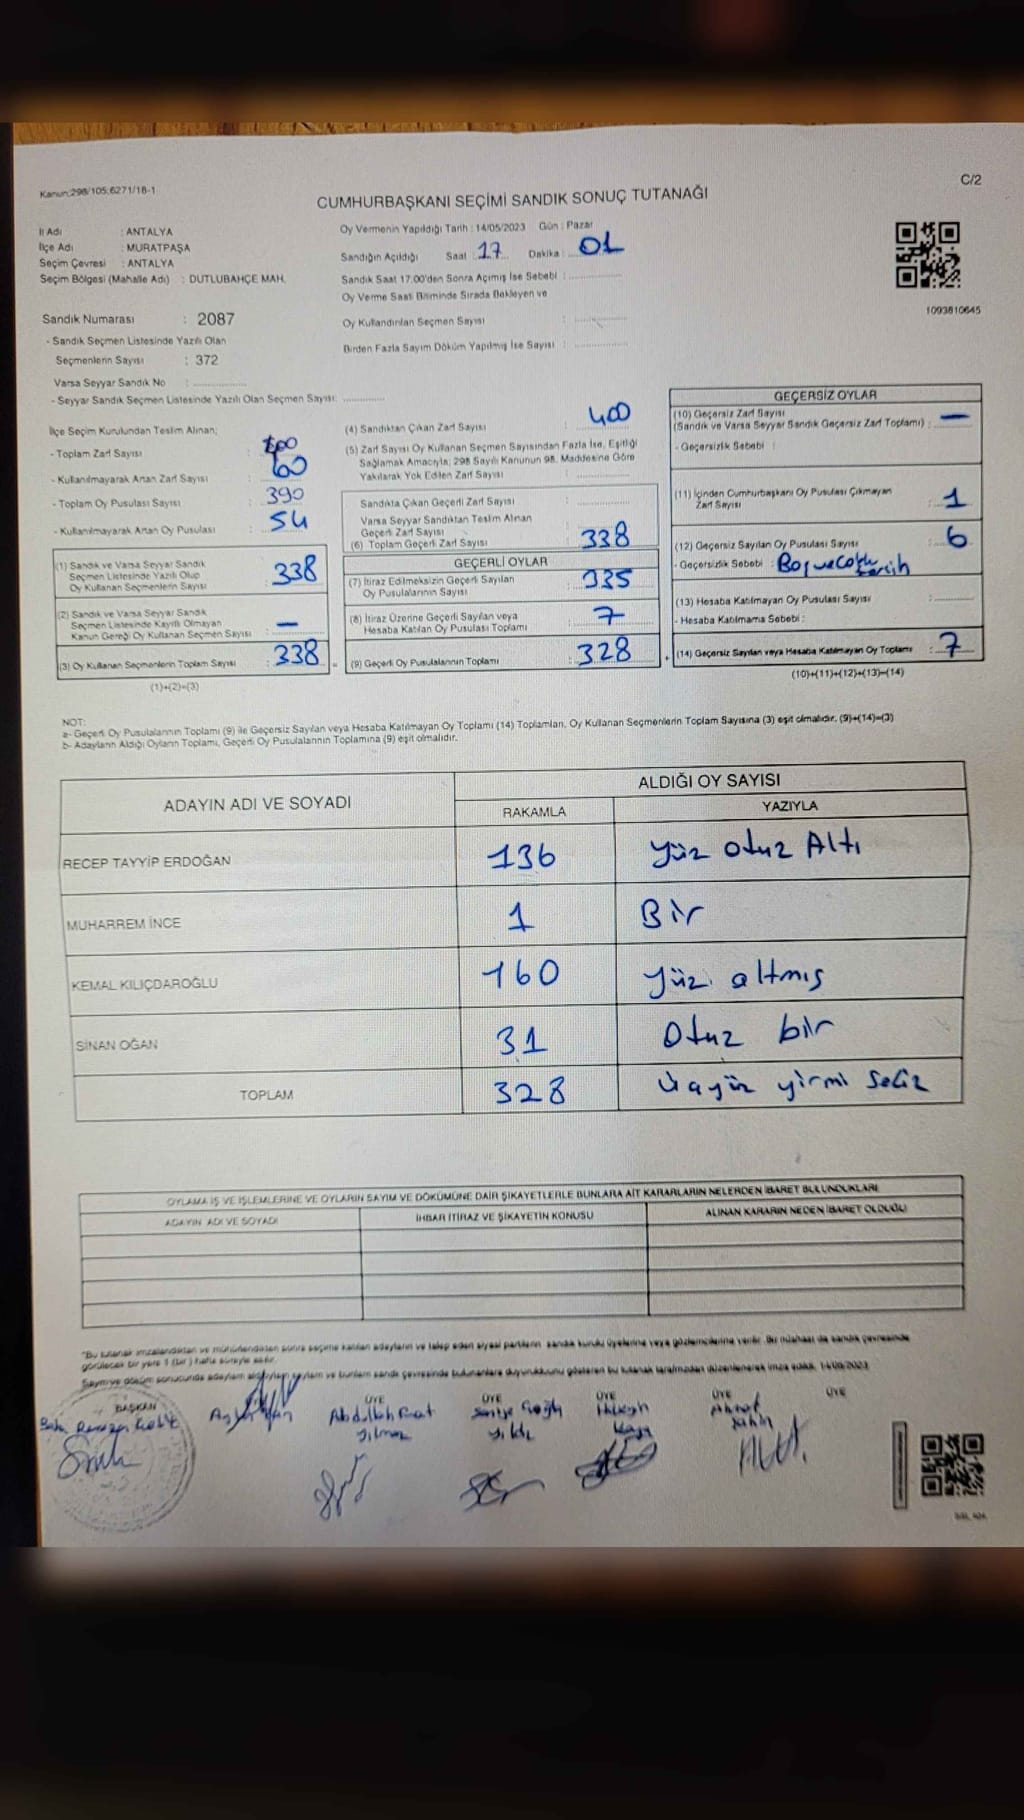 Kanun:298/105;6271/18-1
C/2
CUMHURBAŞKANI SEÇİMİ SANDIK SONUÇ TUTANAĞI
İl Adı : ANTALYA
İlçe Adı : MURATPAŞA
Seçim Çevresi : ANTALYA
Seçim Bölgesi (Mahalle Adı) : DUTLUBAHÇE MAH.
Oy Vermenin Yapıldığı Tarih : 14/05/2023 Gün : Pazar
Sandığın Açıldığı Saat : 17 Dakika : 01
Sandık Saat 17.00'den Sonra Açımış İse Sebebi :
Oy Verme Saati Bitiminde Sırada Bekleyen ve
Oy Kullandırılan Seçmen Sayısı :
Birden Fazla Sayım Döküm Yapılmış İse Sayısı :
1093810645
Sandık Numarası : 2087
- Sandık Seçmen Listesinde Yazılı Olan
Seçmenlerin Sayısı : 372
Varsa Seyyar Sandık No :
- Seyyar Sandık Seçmen Listesinde Yazılı Olan Seçmen Sayısı:
İlçe Seçim Kurulundan Teslim Alınan;
- Toplam Zarf Sayısı : 400
- Kullanılmayarak Artan Zarf Sayısı : 60
- Toplam Oy Pusulası Sayısı : 390
- Kullanılmayarak Artan Oy Pusulası : 54
(1) Sandık ve Varsa Seyyar Sandık
Seçmen Listesinde Yazılı Olup
Oy Kullanan Seçmenlerin Sayısı : 338
(2) Sandık ve Varsa Seyyar Sandık
Seçmen Listesinde Kayıtlı Olmayan
Kanun Gereği Oy Kullanan Seçmen Sayısı : —
(3) Oy Kullanan Seçmenlerin Toplam Sayısı : 338
(1)+(2)=(3)
(4) Sandıktan Çıkan Zarf Sayısı : 400
(5) Zarf Sayısı Oy Kullanan Seçmen Sayısından Fazla İse, Eşitliği
Sağlamak Amacıyla; 298 Sayılı Kanunun 98. Maddesine Göre
Yakılarak Yok Edilen Zarf Sayısı :
Sandıkta Çıkan Geçerli Zarf Sayısı :
Varsa Seyyar Sandıktan Teslim Alınan
Geçerli Zarf Sayısı :
(6) Toplam Geçerli Zarf Sayısı : 338
GEÇERLİ OYLAR
(7) İtiraz Edilmeksizin Geçerli Sayılan
Oy Pusulalarının Sayısı : 335
(8) İtiraz Üzerine Geçerli Sayılan veya
Hesaba Katılan Oy Pusulası Toplamı : 7
(9) Geçerli Oy Pusulalarının Toplamı : 328
GEÇERSİZ OYLAR
(10) Geçersiz Zarf Sayısı
(Sandık ve Varsa Seyyar Sandık Geçersiz Zarf Toplamı) : —
- Geçersizlik Sebebi :
(11) İçinden Cumhurbaşkanı Oy Pusulası Çıkmayan
Zarf Sayısı : 1
(12) Geçersiz Sayılan Oy Pusulası Sayısı : 6
- Geçersizlik Sebebi : Boş ve Çoklu tercih
(13) Hesaba Katılmayan Oy Pusulası Sayısı :
- Hesaba Katılmama Sebebi :
(14) Geçersiz Sayılan veya Hesaba Katılmayan Oy Toplamı : 7
(10)+(11)+(12)+(13)=(14)
NOT:
a- Geçerli Oy Pusulalarının Toplamı (9) ile Geçersiz Sayılan veya Hesaba Katılmayan Oy Toplamı (14) Toplamları, Oy Kullanan Seçmenlerin Toplam Sayısına (3) eşit olmalıdır. (9)+(14)=(3)
b- Adayların Aldığı Oyların Toplamı, Geçerli Oy Pusulalarının Toplamına (9) eşit olmalıdır.
ADAYIN ADI VE SOYADI ALDIĞI OY SAYISI
RAKAMLA YAZIYLA
RECEP TAYYİP ERDOĞAN 136 Yüz Otuz Altı
MUHARREM İNCE 1 Bir
KEMAL KILIÇDAROĞLU 160 Yüz altmış
SİNAN OĞAN 31 Otuz bir
TOPLAM 328 Üçyüz yirmi Sekiz
OYLAMA İŞ VE İŞLEMLERİNE VE OYLARIN SAYIM VE DÖKÜMÜNE DAİR ŞİKAYETLERLE BUNLARA AİT KARARLARIN NELERDEN İBARET BULUNDUKLARI
ADAYIN ADI VE SOYADI İHBAR İTİRAZ VE ŞİKAYETİN KONUSU ALINAN KARARIN NEDEN İBARET OLDUĞU
"Bu tutanak imzalandıktan ve mühürlendikten sonra seçime katılan adayların ve talep eden siyasi partilerin sandık kurulu üyelerine veya gözlemcilerine verilir. Bir nüshası da sandık çevresinde
görülecek bir yere 1 (bir) hafta süreyle asılır.
BAŞKAN ÜYE ÜYE ÜYE ÜYE ÜYE
Abdullah Fırat
Yılmaz Yıldız Kaya Şahin